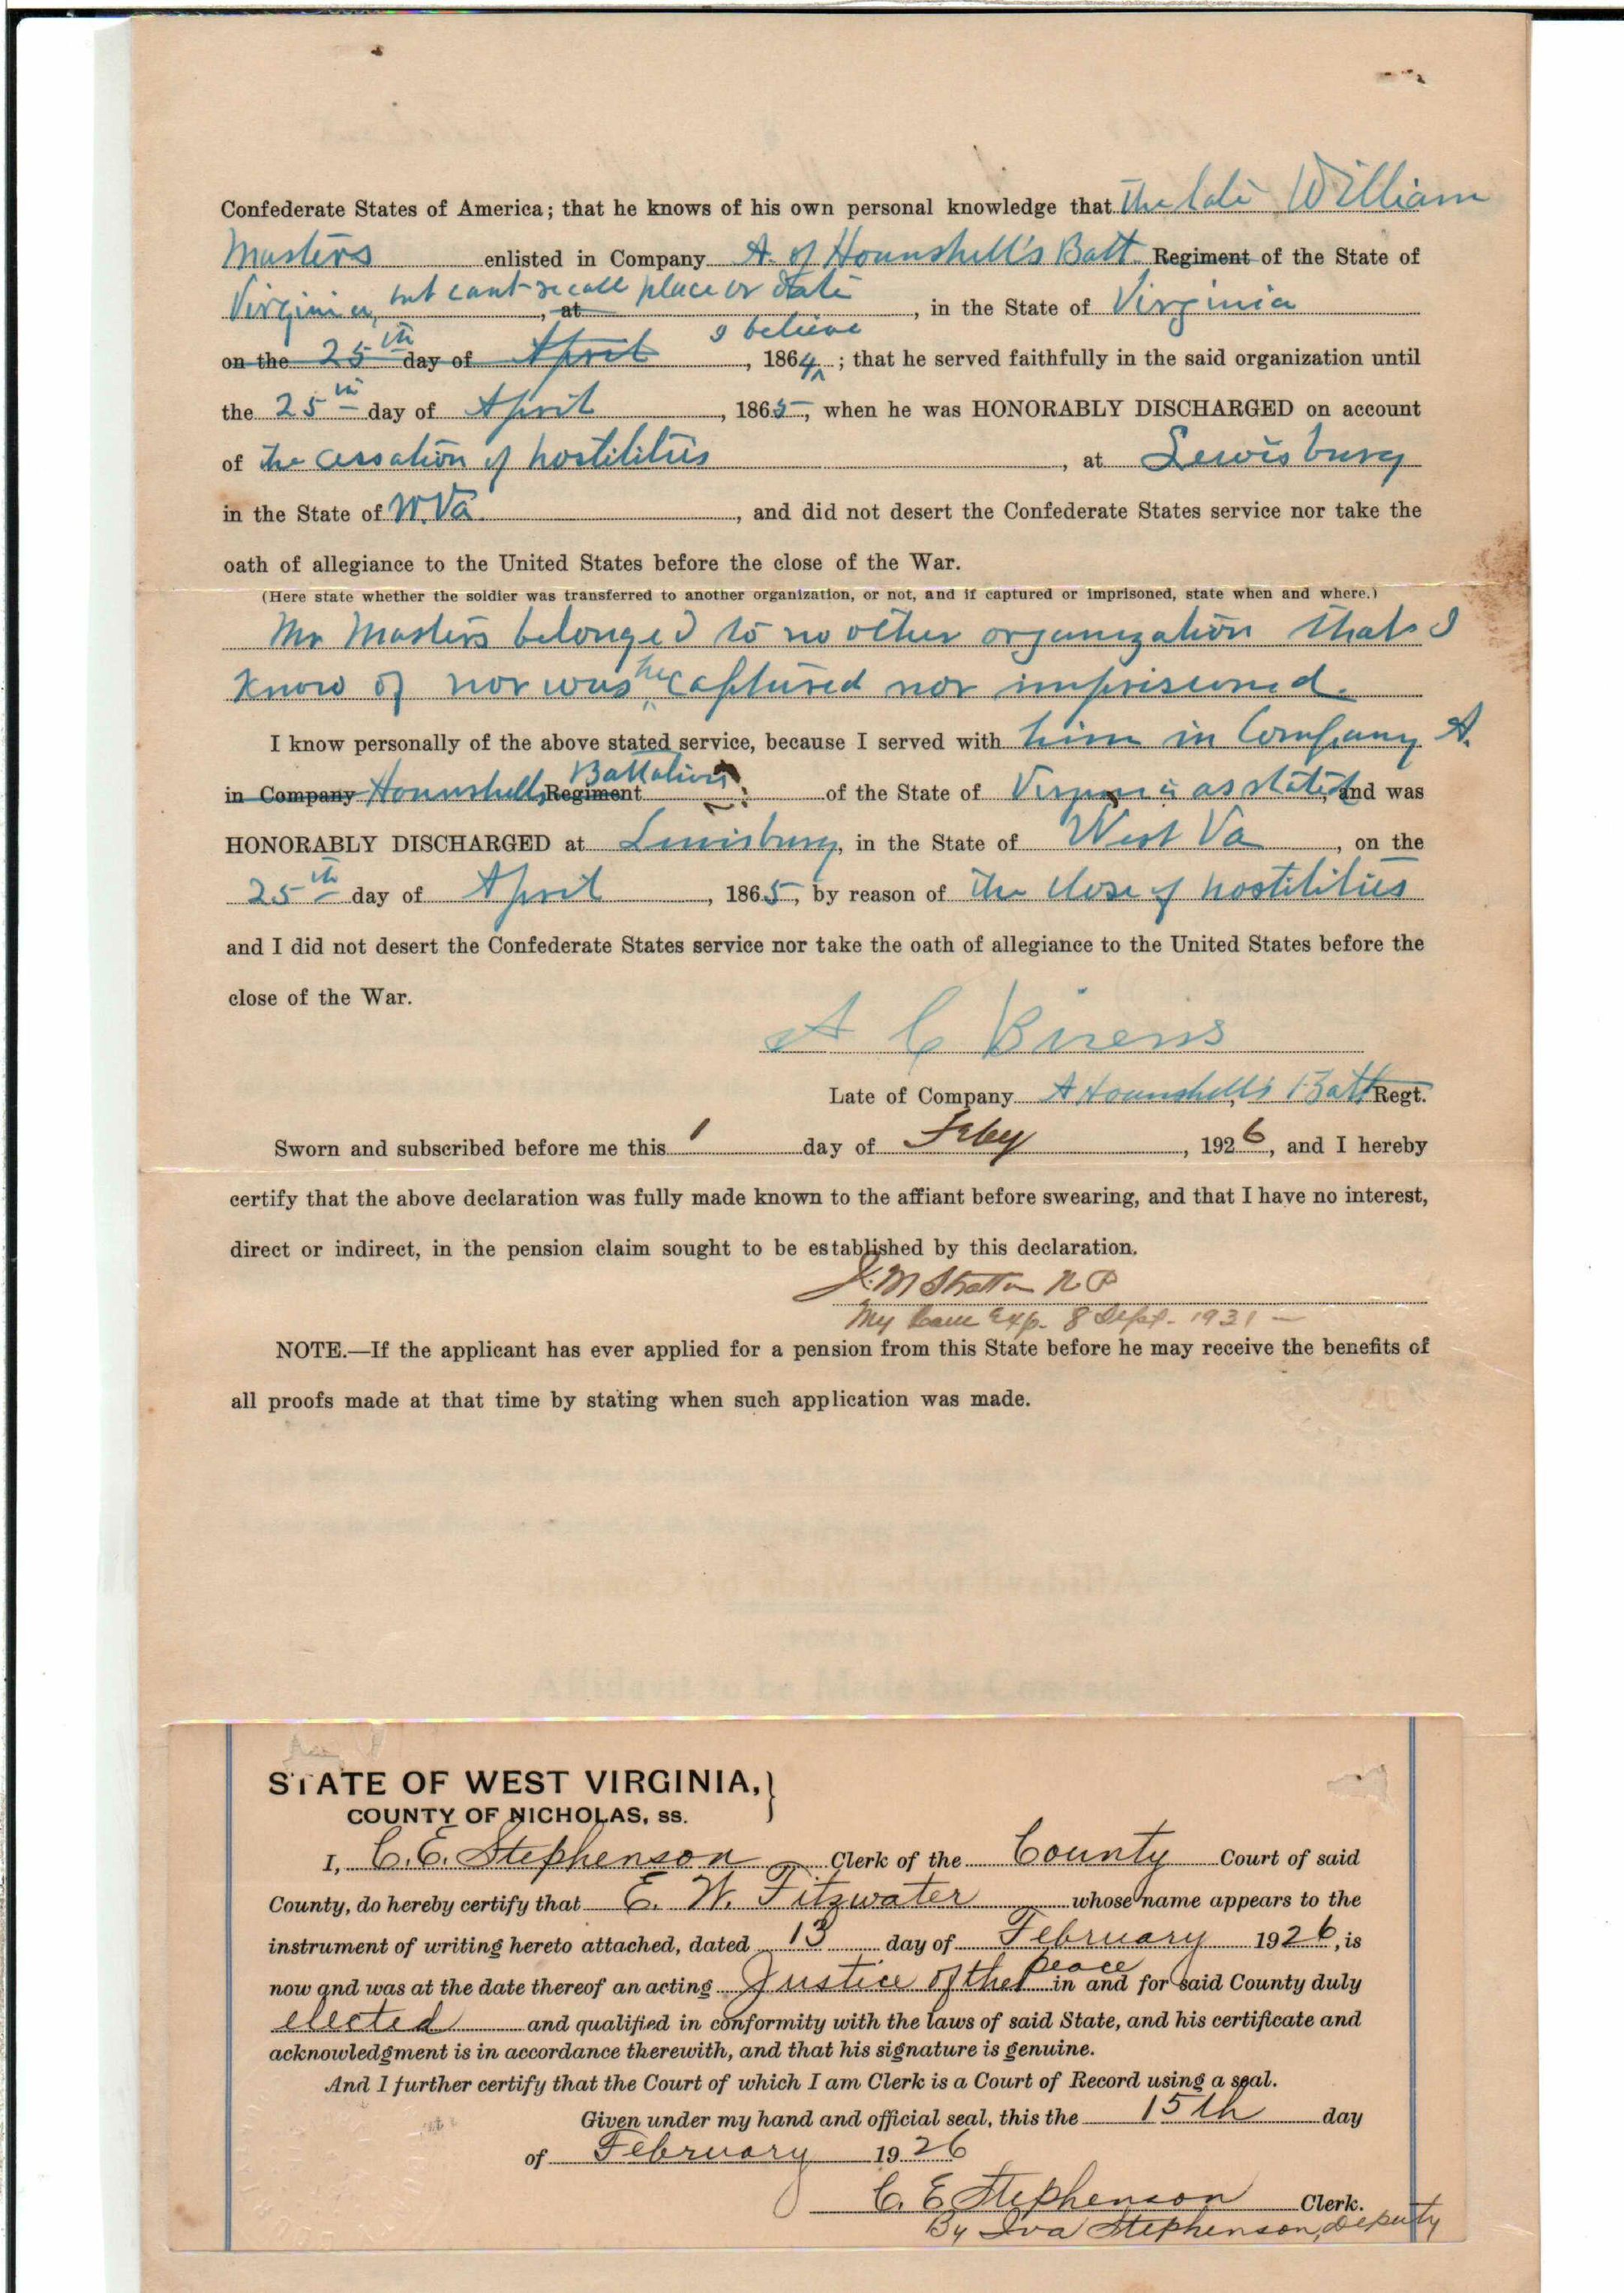 Confederate States of America; that he knows of his own personal knowledge that the late William
Masters enlisted in Company A. of Hounshell's Batt Regiment of the State of
Virginia, but cant recall place or date, at , in the State of Virginia
on the 25th day of April I believe, 1864; that he served faithfully in the said organization until
the 25th day of April, 1865, when he was HONORABLY DISCHARGED on account
of the cessation of hostilities, at Lewisburg
in the State of W.Va., and did not desert the Confederate States service nor take the
oath of allegiance to the United States before the close of the War.
(Here state whether the soldier was transferred to another organization, or not, and if captured or imprisoned, state when and where.)
Mr Masters belonged to no other organization that I
know of nor was he captured nor imprisoned.
I know personally of the above stated service, because I served with him in Company A.
in Company Hounshells Regiment Battalion of the State of Virginia as stated, and was
HONORABLY DISCHARGED at Lewisburg, in the State of West Va, on the
25th day of April, 1865, by reason of the close of hostilities
and I did not desert the Confederate States service nor take the oath of allegiance to the United States before the
close of the War.
A C
Late of Company A Hounshell's Batt Regt.
Sworn and subscribed before me this 1 day of Feby, 1926, and I hereby
certify that the above declaration was fully made known to the affiant before swearing, and that I have no interest,
direct or indirect, in the pension claim sought to be established by this declaration.
J. M Stratton N P
My Com Exp. 8 Sept. 1931 —
NOTE.—If the applicant has ever applied for a pension from this State before he may receive the benefits of
all proofs made at that time by stating when such application was made.
STATE OF WEST VIRGINIA,}
COUNTY OF NICHOLAS, ss.
I, C. E. Stephenson Clerk of the County Court of said
County, do hereby certify that E. W. Fitzwater whose name appears to the
instrument of writing hereto attached, dated 13 day of February 1926, is
now and was at the date thereof an acting Justice of the peace in and for said County duly
elected and qualified in conformity with the laws of said State, and his certificate and
acknowledgment is in accordance therewith, and that his signature is genuine.
And I further certify that the Court of which I am Clerk is a Court of Record using a seal.
Given under my hand and official seal, this the 15th day
of February 1926
C. E Stephenson Clerk.
By Iva Stephenson, Deputy